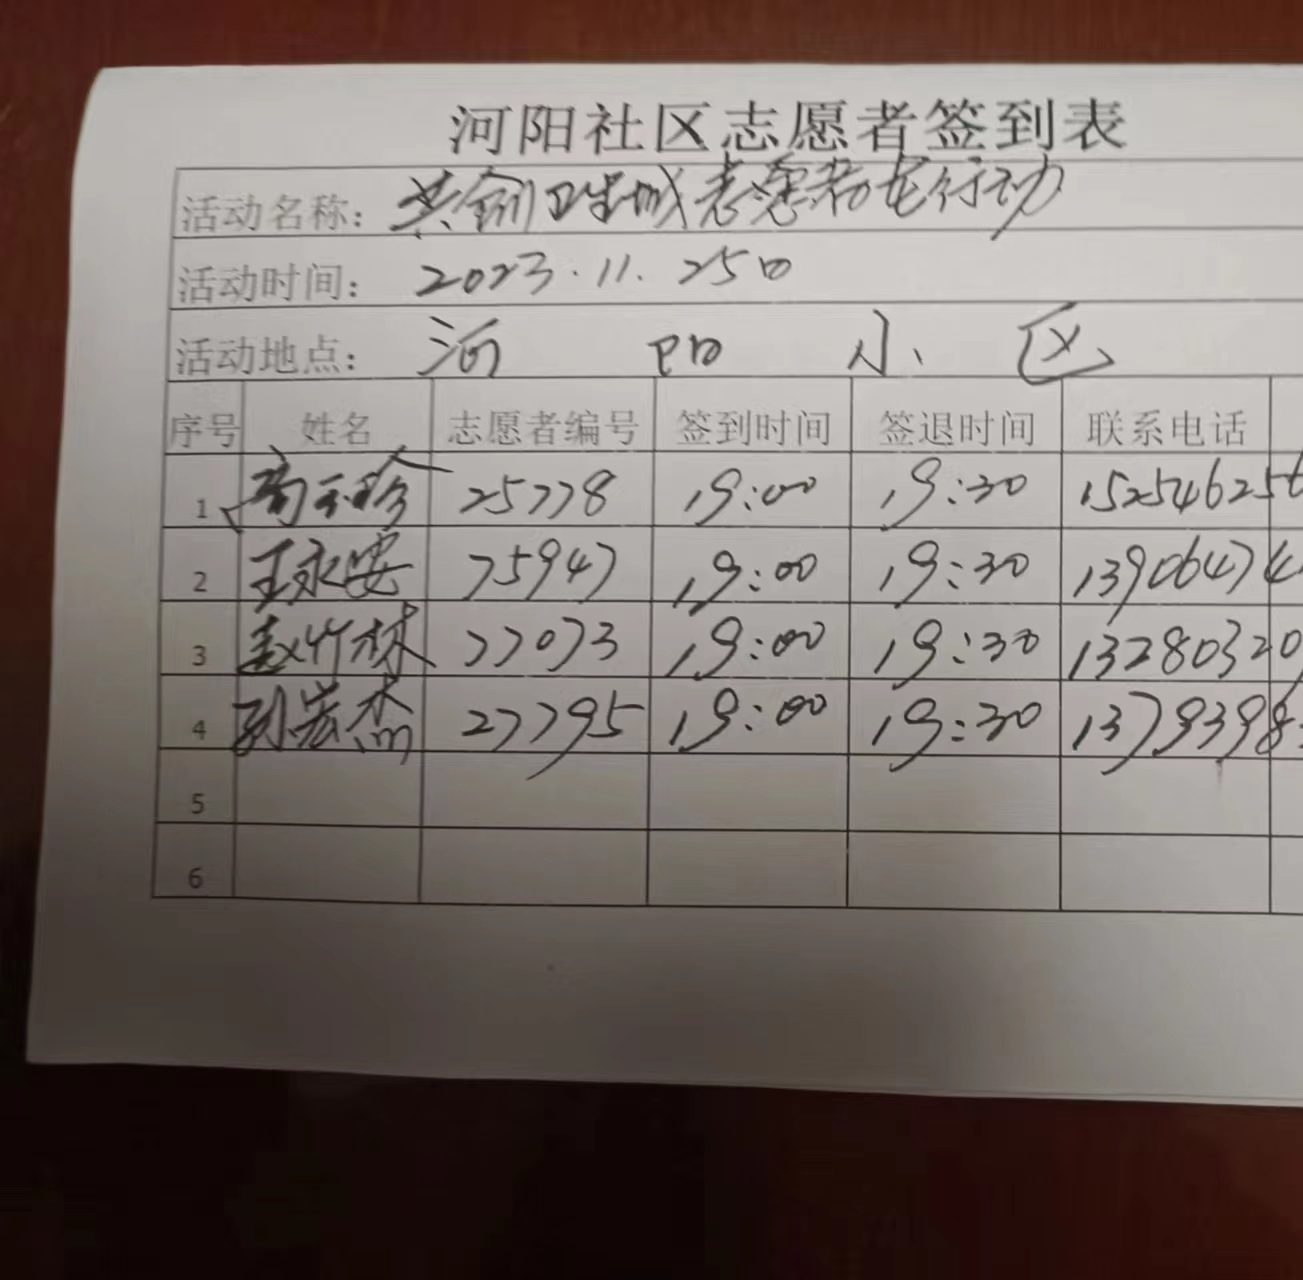 河阳社区志愿者签到表
活动名称: 共创卫生城志愿者在行动
活动时间: 2023.11.25日
活动地点: 河阳小区
序号 姓名 志愿者编号 签到时间 签退时间 联系电话
1 高玉珍 25778 19:00 19:30 152546256
2 王永安 75947 19:00 19:30 13906474
3 赵竹林 77073 19:00 19:30 13280320
4 孙宏杰 27795 19:00 19:30 13793398
5
6